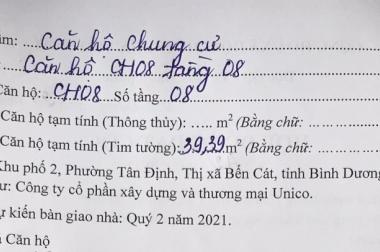 ồm: ....Căn hộ chung cư
Căn hộ CH08 tầng 08
Căn hộ: ..CH08.. Số tầng ..08
Căn hộ tạm tính (Thông thủy): ….. m² (Bằng chữ: ...................
Căn hộ tạm tính (Tim tường):39,39m² (Bằng chữ: ...................
Khu phố 2, Phường Tân Định, Thị xã Bến Cát, tỉnh Bình Dương
ư: Công ty cổ phần xây dựng và thương mại Unico.
ự kiến bàn giao nhà: Quý 2 năm 2021.
Căn Hộ